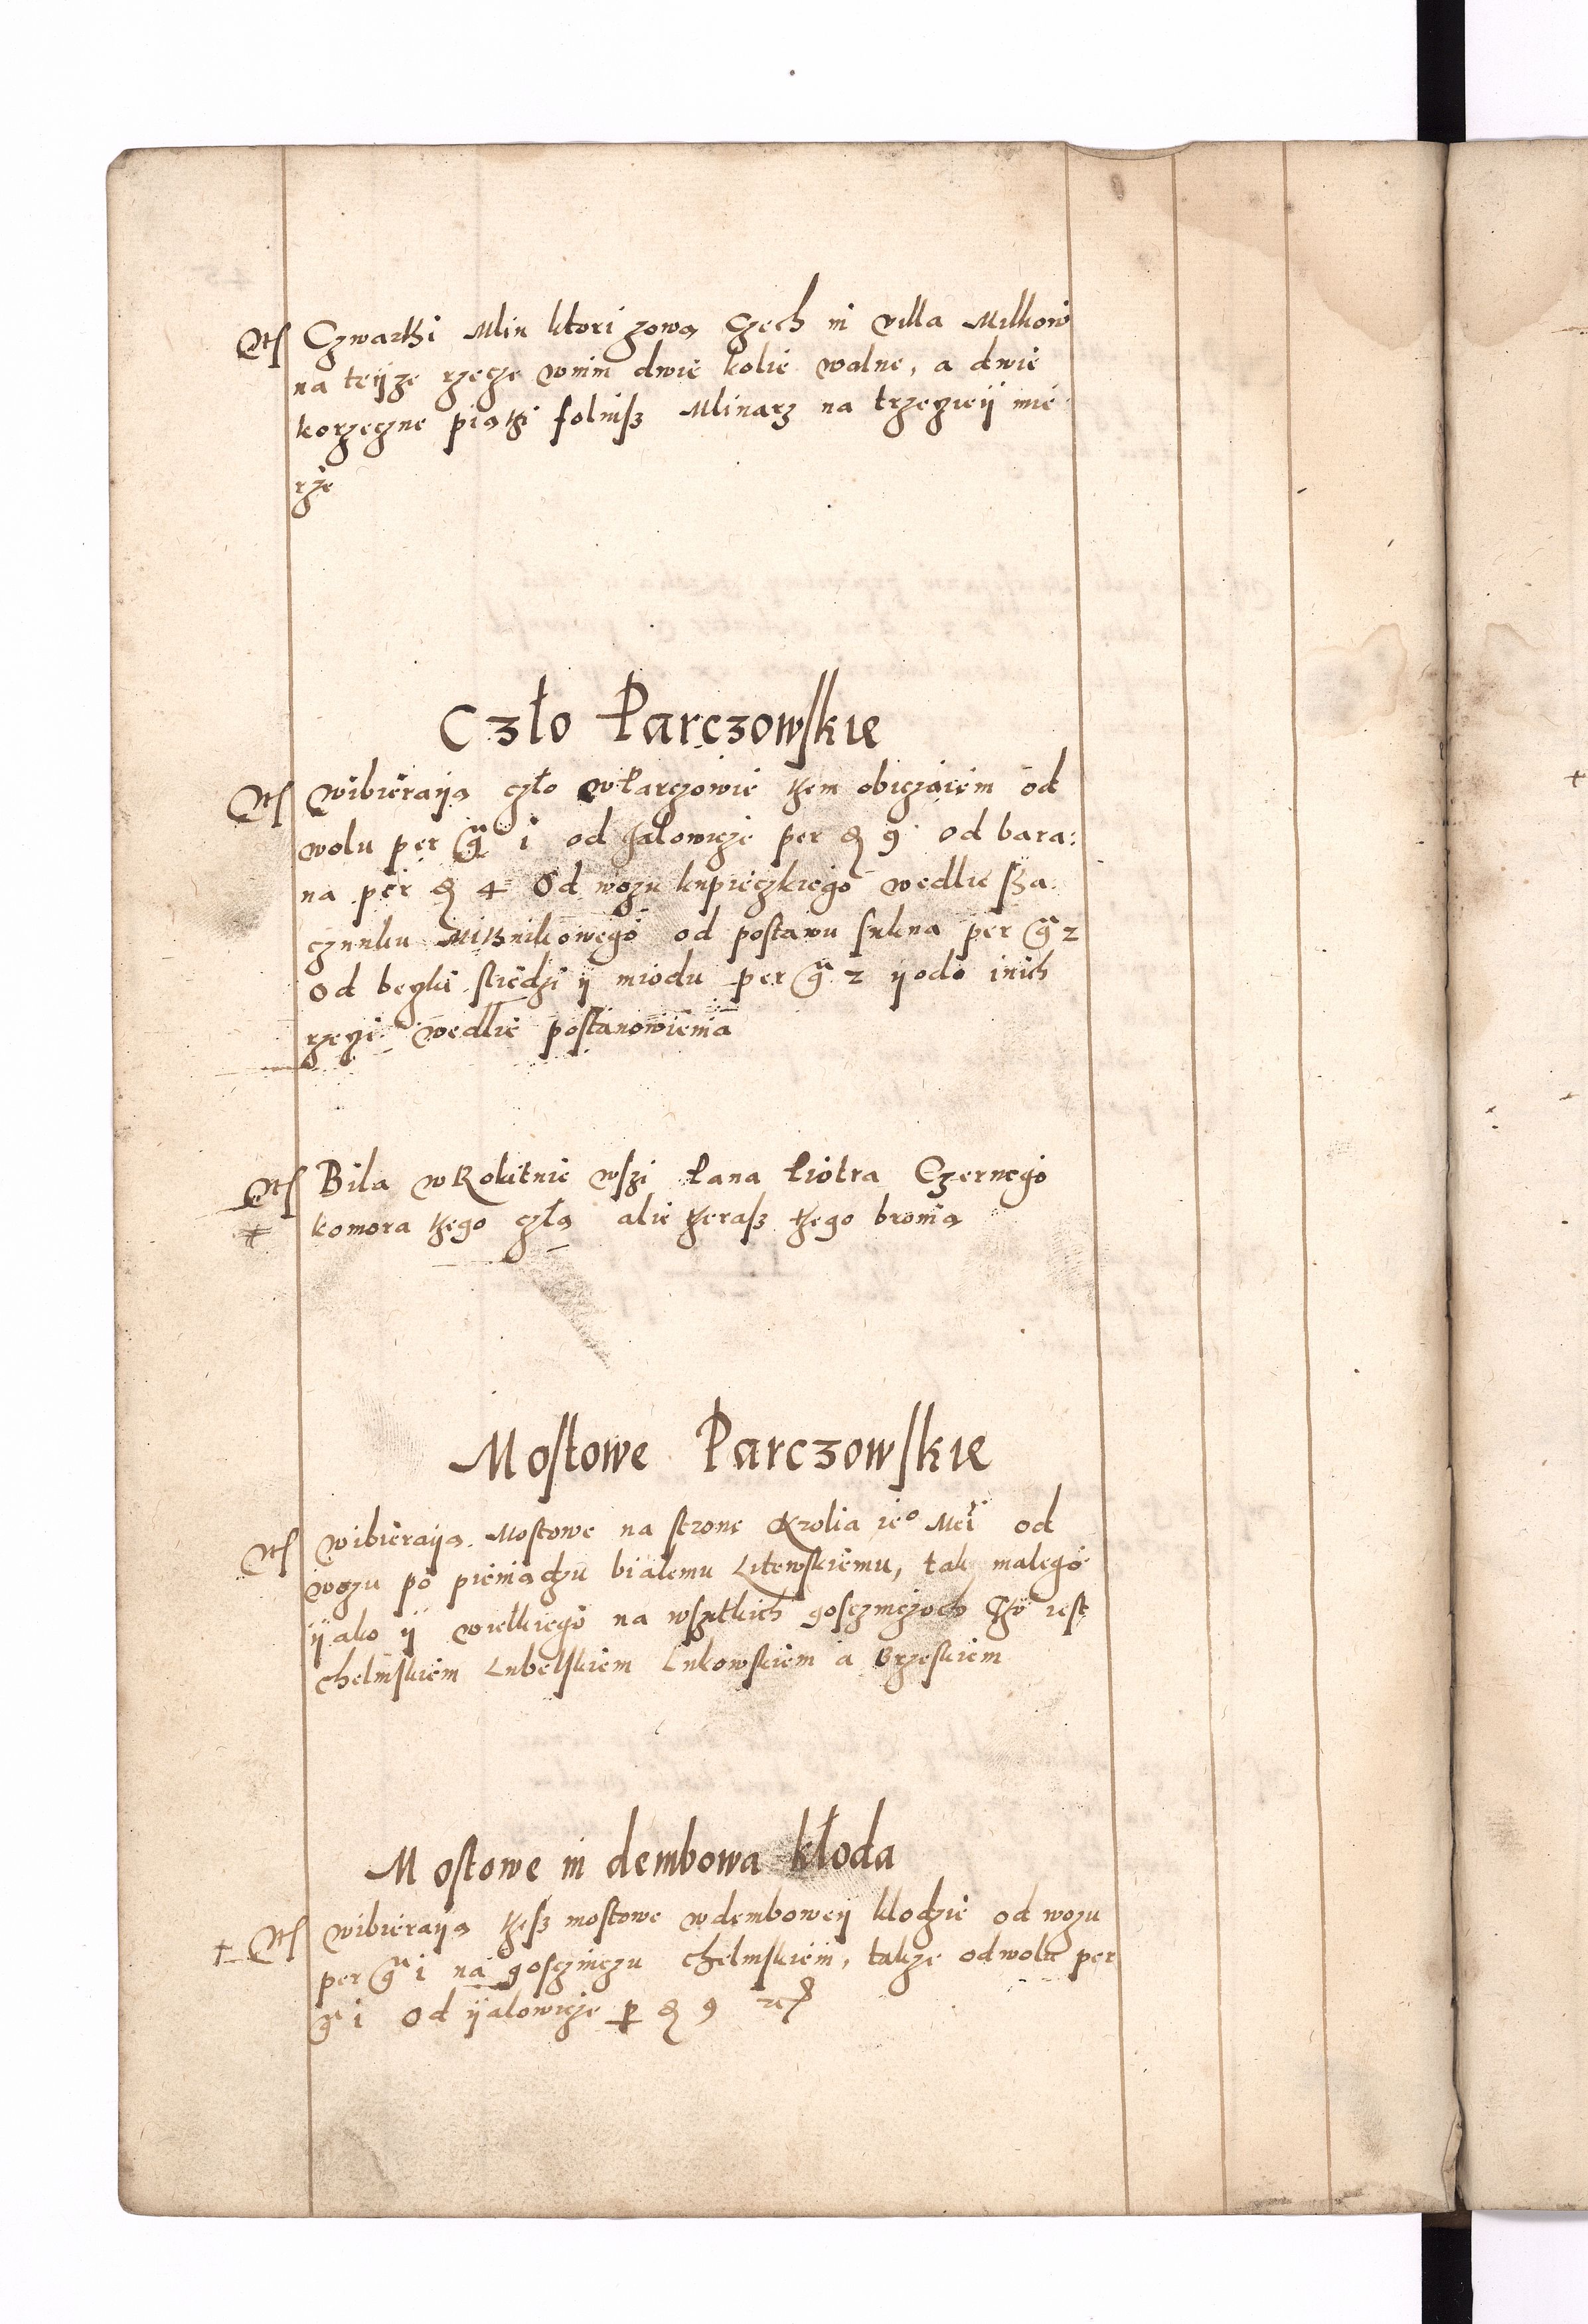 Czwarthi Mlin ktori zową Czech in villa Milkow
na teyze rzecze wnim dwie kolie walne, a dwie
korzeczne piąthi folusz Mlinarz na trzecziey mie
rze
Czło Parczowskie
wibieraią czło w Parczowie them obiczaiem od
wolu per gr i od Jalowicze per d 9 Od bara:
na per d 4 Od wozu kupieczkiego wedlie sza
czunku od postawu sukna per gr 2
Od beczki sliedzi y miodu per gr 2 y odo inich
rzeczi wedlie postanowienia
Bila w Rokitnie wszi Pana Piotra Czernego
komora thego czła alie theraz thego bronią
Mostowe Parczowskie
wibieraią Mostowe na strone Krolia ieo Mci od
wozu po pieniadzu bialemu Litewskiemu, tak malego
yako y wielkiego na wszitkich goscziniczoch tho iest
chelmskiem Lubelskiem Lukowskiem a Brzeskiem
Mostowe in dembowa kłoda
† wibieraią thesz mostowe wdembowey klodzie od wozu
per gr i na goscziniczu chelmskiem, takze od wolu per
gr i Od yalowicze per d 9